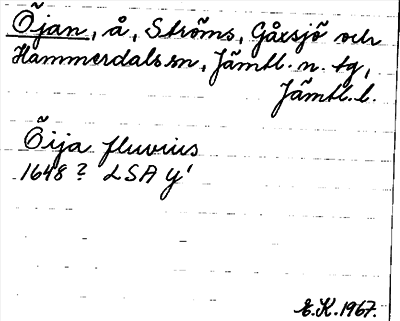 Öjan, å, Ströms, Gåxsjö och
Hammerdals sn, Jämtl. n. tg,
Jämtl. l.
Öija fluvius
1648? LSA Y¹
E.K. 1967.